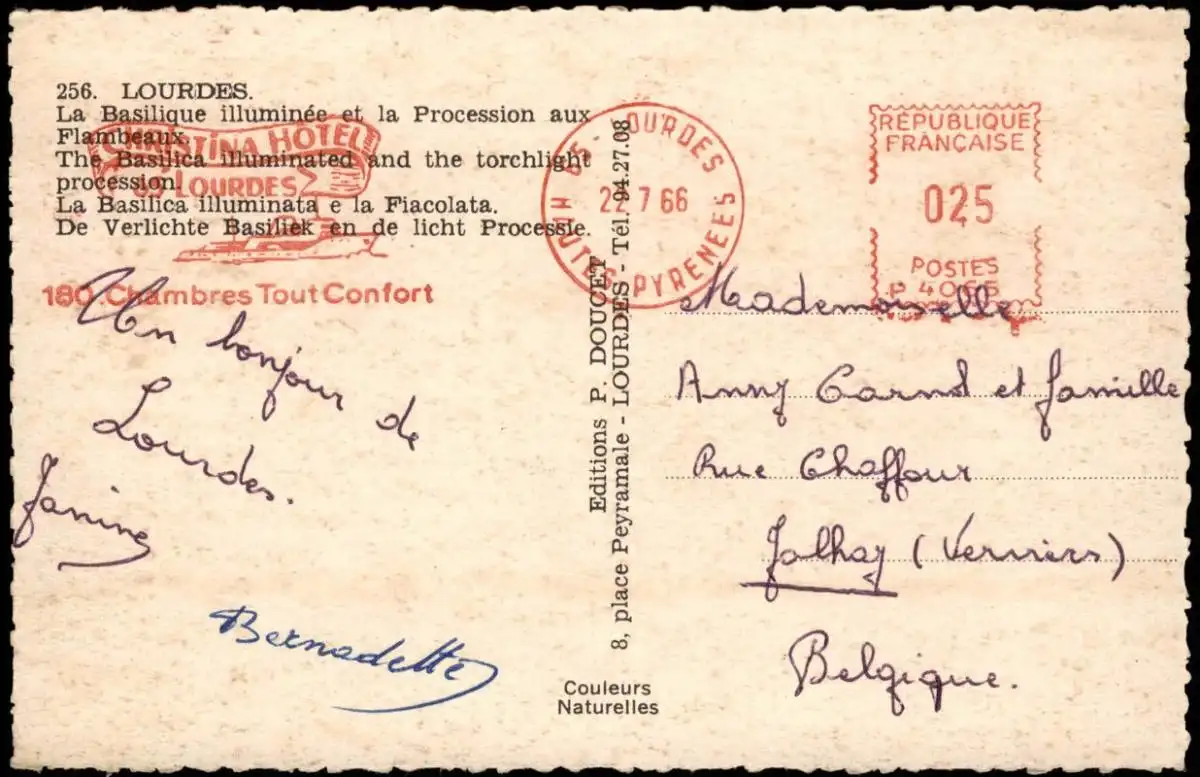 256. LOURDES.
La Basilique illuminée et la Procession aux
Flambeaux.
The Basilica illuminated and the torchlight
procession.
La Basilica illuminata e la Fiacolata.
De Verlichte Basiliek en de licht Processie.
HOTEL
LOURDES
180 Chambres Tout Confort
Un bonjour de
Lourdes.
Janine
Bernadette
Couleurs
Naturelles
Editions P. DOUCET
8, place Peyramale - LOURDES - Tél. 94.27.08
LOURDES
22 7 66
HAUTES PYRENEES
RÉPUBLIQUE
FRANÇAISE
025
POSTES
Mademoiselle
Anny Carnol et famille
Rue Chaffour
Jalhay (Verviers)
Belgique.